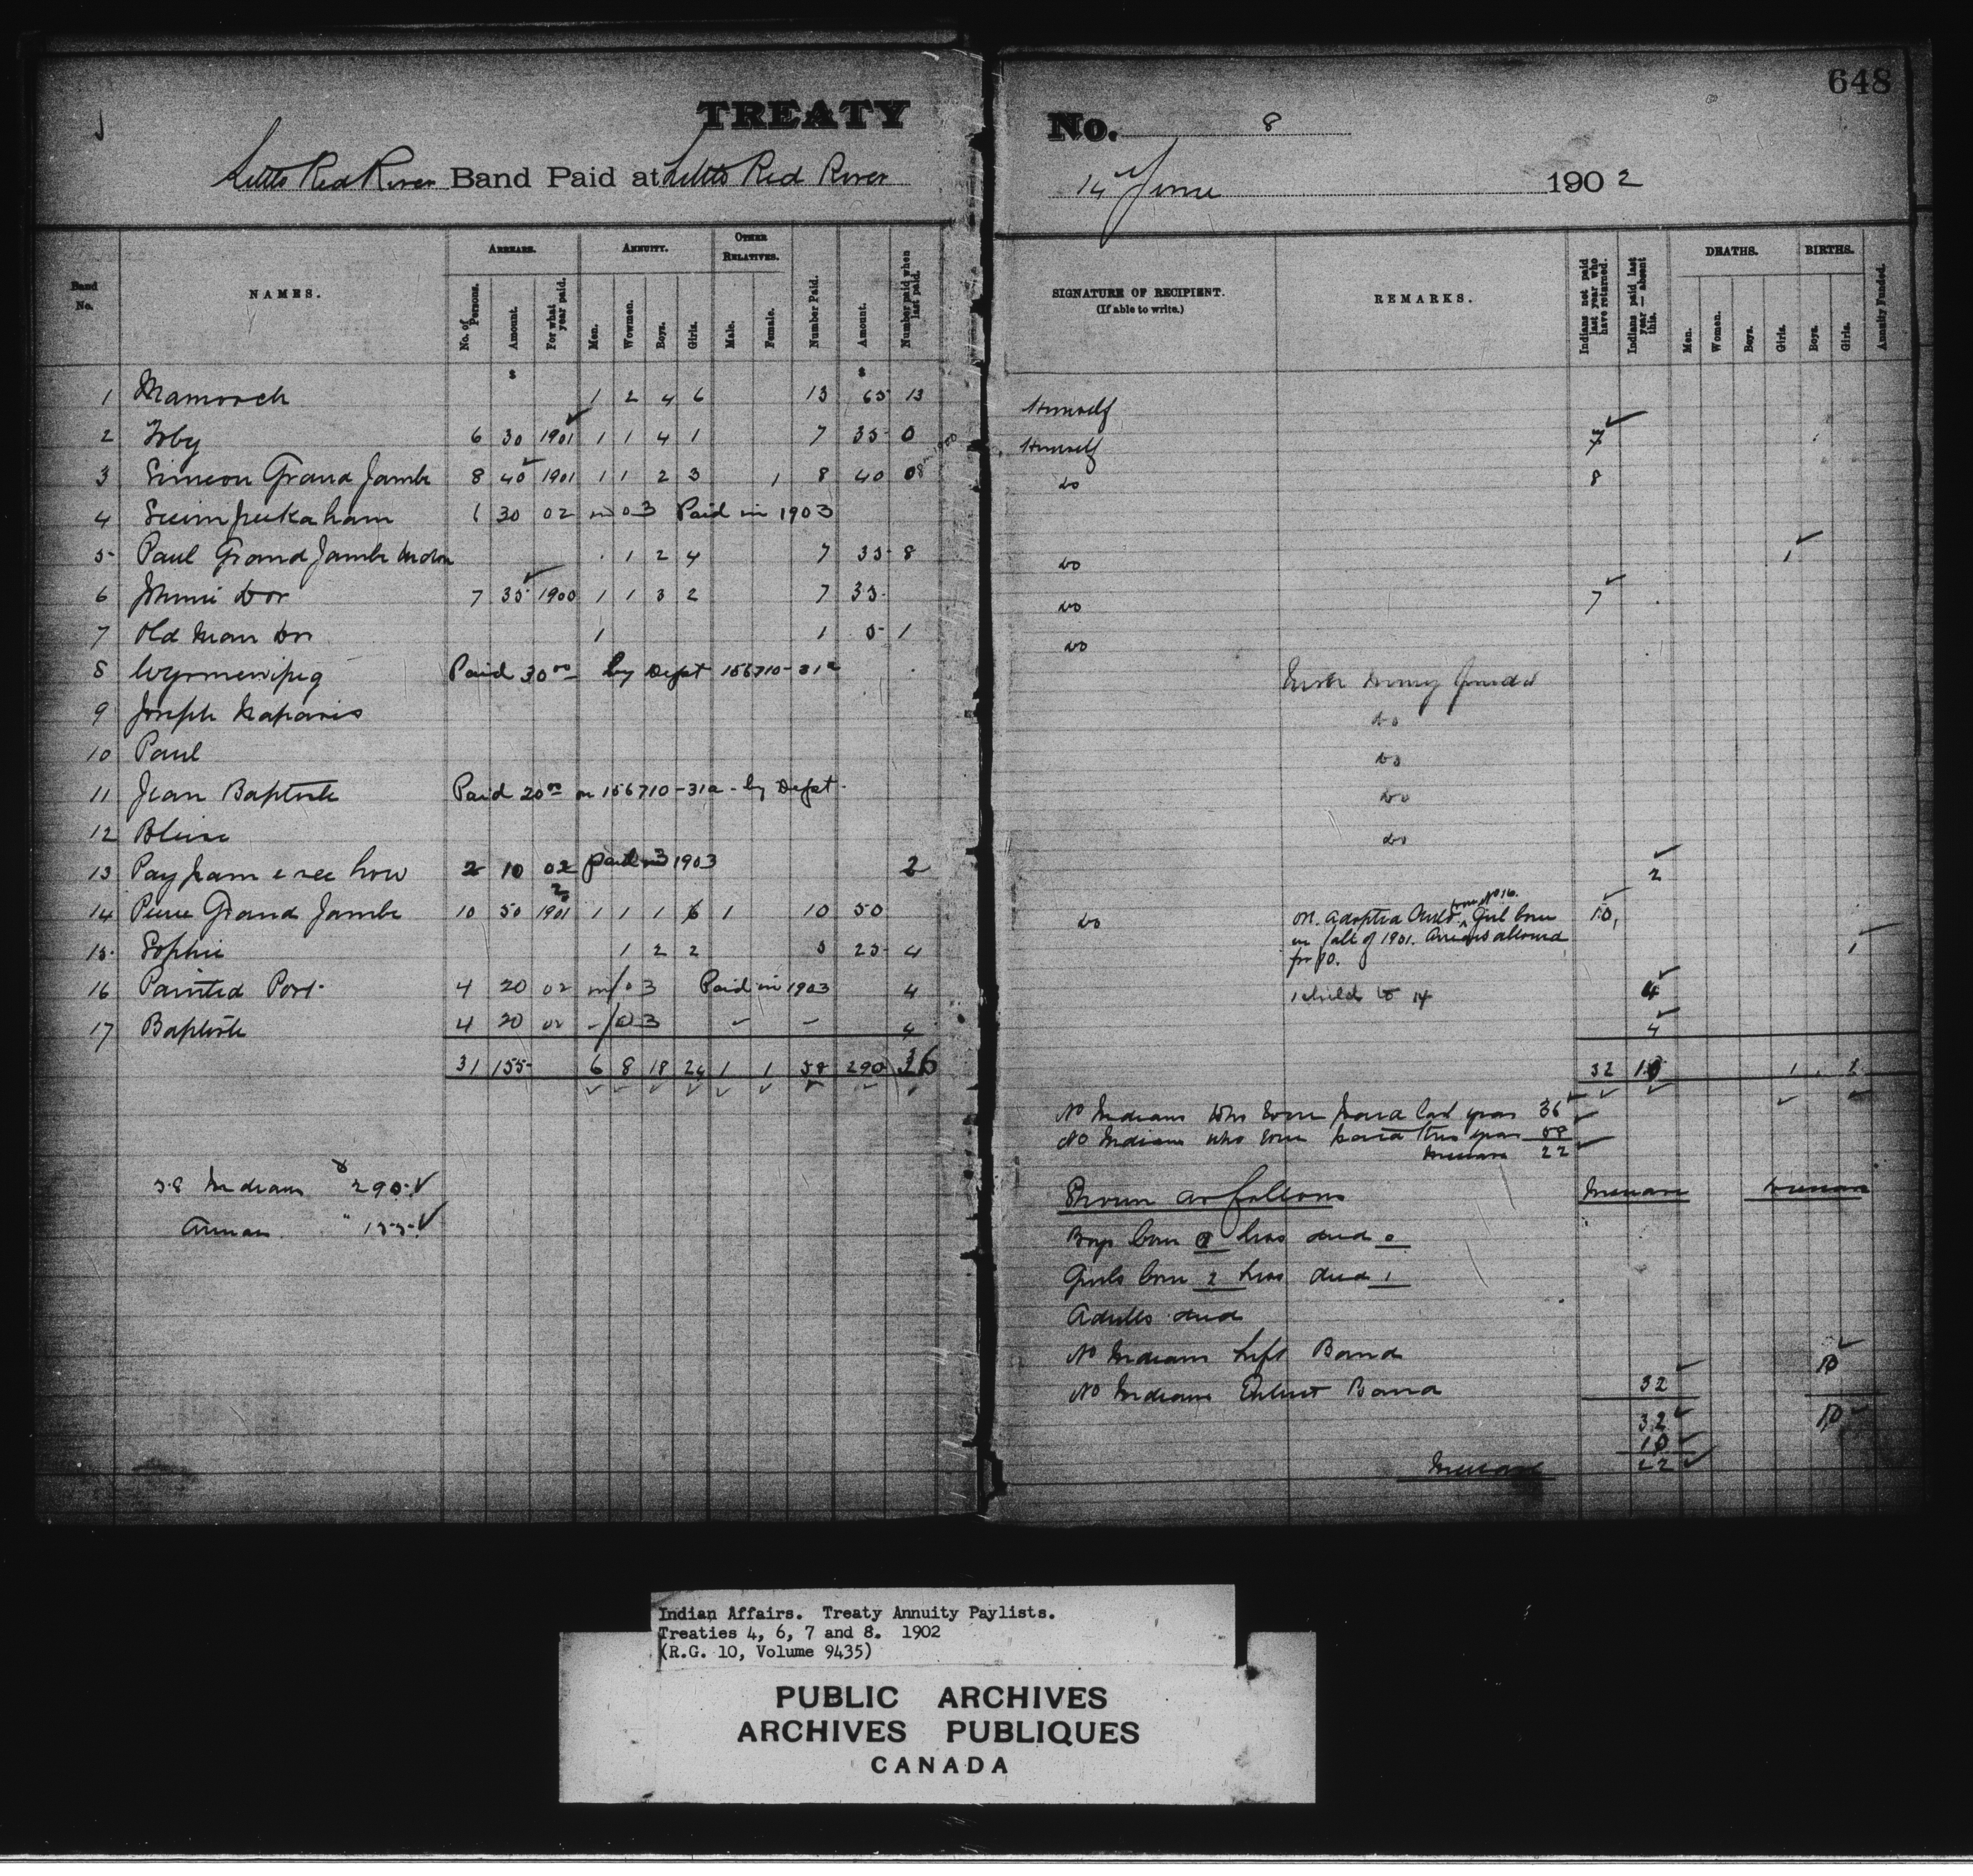 648
TREATY No. 8
Little Red River Band Paid at Little Red River 14 June 1902
Band No. NAMES. ARREARS. ANNUITY. OTHER RELATIVES. Number Paid. Amount. Number paid when last paid.
No. of Persons. Amount. For what year paid. Men. Wowmen. Boys. Girls. Male. Female.
SIGNATURE OF RECIPIENT. (If able to write.) REMARKS. Indians not paid last year who have returned. Indians paid last year — absent this. DEATHS. BIRTHS. Annuity Funded.
Men. Women. Boys. Girls. Boys. Girls.
$ $
1 1 2 4 6 13 65 13 Himself
2 6 30 1901 1 1 4 1 7 35 0 Himself 7
3 Simeon Grand Jambe 8 40 1901 1 1 2 3 1 8 40 0 do 8
4 6 30 02 in 03 Paid in 1903
5 Paul Grand Jambe 1 2 4 7 35 8 do 1
6 Johnni Dor 7 35 1900 1 1 3 2 7 35 do 7
7 Old Man Dor 1 1 5 1 do
8 Paid 30 00 by Dept 156710-31a
9 Joseph do
10 Paul do
11 Jean Baptiste Paid 20 00 on 156710-31a - by Dept. do
12 do
13 2 10 02 paid in 1903 2 2
14 Pierre Grand Jambe 10 50 1901 1 1 1 6 1 10 50 do adopted child from No 16. Girl born 10
in fall of 1901. Arrears allowed
for 10.
15 Sophie 1 2 2 5 25 4 1
16 4 20 02 in/03 Paid in 1903 4 1 child to 14 4
17 Baptiste 4 20 02 -/03 4 4
31 155 6 8 18 24 1 1 58 290 36 32 10 1 2
No Indians who were paid last year 36
No Indians who were paid this year 58
Increase 22
58 Indians $ 290
Arrears " 155
Shown as follows Increase Decrease
Boys born 0 less died 0
Girls born 2 less died 1
Adults died
No Indians left Band 10
No Indians Entered Band 32
32 10
10
Increase 22
Indian Affairs. Treaty Annuity Paylists.
Treaties 4, 6, 7 and 8. 1902
(R.G. 10, Volume 9435)
PUBLIC ARCHIVES
ARCHIVES PUBLIQUES
CANADA